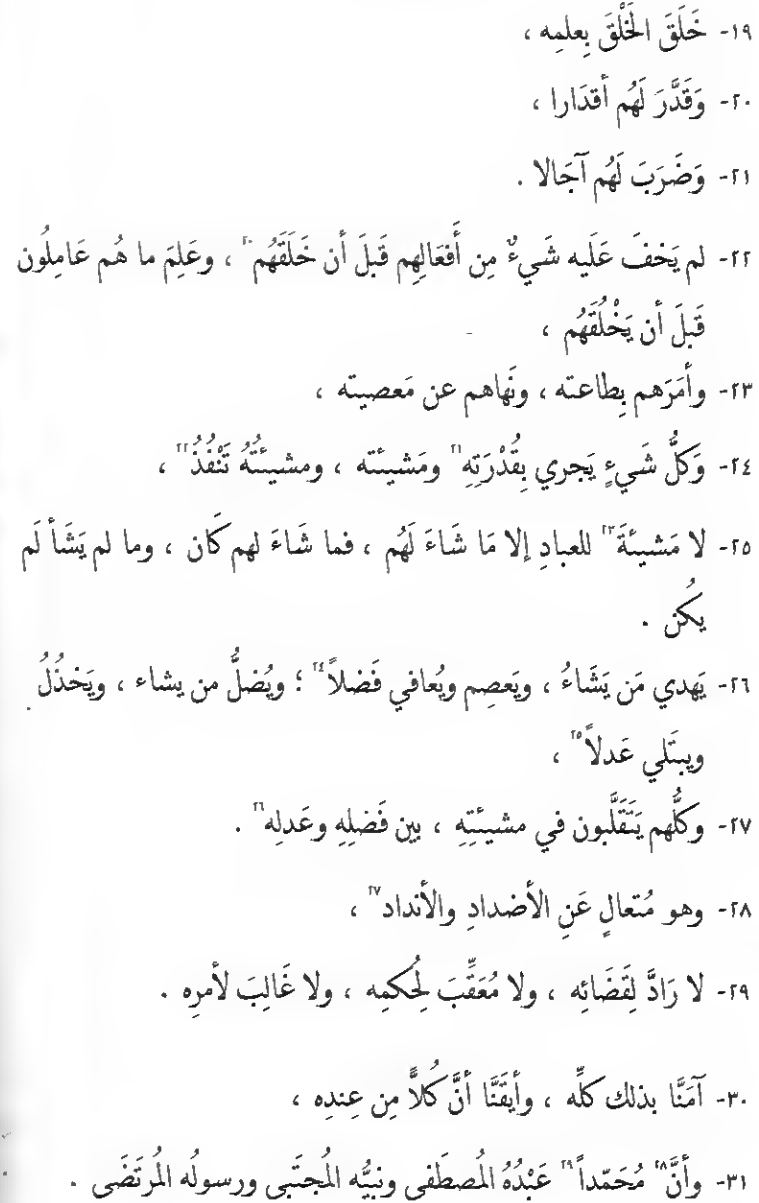 ١٩- خَلَقَ الخَلْقَ بِعلمِه ،
٢٠- وَقَدَّرَ لَهُم أقدَارا ،
٢١- وَضَرَبَ لَهُم آجَالا .
٢٢- لم يَخْفَ عَلَيه شَيءٌ مِن أَفعَالِهِم قَبلَ أن خَلَقَهُم ٢٠ ، وعَلِمَ ما هُم عَامِلُون
قَبلَ أن يَخْلُقَهُم ،
٢٣- وأمَرَهم بِطاعته ، ونَهاهم عن مَعصيته ،
٢٤- وَكلُّ شَيءٍ يَجري بِقُدْرَتِهِ ٢١ ومَشيئته ، ومشيئتُهُ تَنْفُذُ ٢٢ ،
٢٥- لا مَشيئةَ ٢٣ للعبادِ إلا مَا شَاءَ لَهُم ، فما شَاءَ لهم كَان ، وما لم يَشَأ لَم
يكُن .
٢٦- يَهدي مَن يَشَاءُ ، ويَعصِم ويُعافي فَضلاً ٢٤ ؛ ويُضلُّ من يشاء ، ويَخذُلُ
ويبتَلي عَدلاً ٢٥ ،
٢٧- وكلُّهم يَتَقَلَّبون في مشيئتِهِ ، بين فَضلِهِ وعَدلِه ٢٦ .
٢٨- وهو مُتعالٍ عَنِ الأضدادِ والأنداد ٢٧ ،
٢٩- لا رَادَّ لِقَضَائِه ، ولا مُعَقِّبَ لِحُكمِه ، ولا غَالِبَ لأمرِه .
٣٠- آمَنَّا بذلك كلِّه ، وأيقَنَّا أنَّ كُلاًّ مِن عِندِه ،
٣١- وأنَّ ٢٨ مُحَمّداً ٢٩ عَبْدُهُ المُصطَفى ونبيُّه المُجتَبى ورسولُه المُرتَضَى .